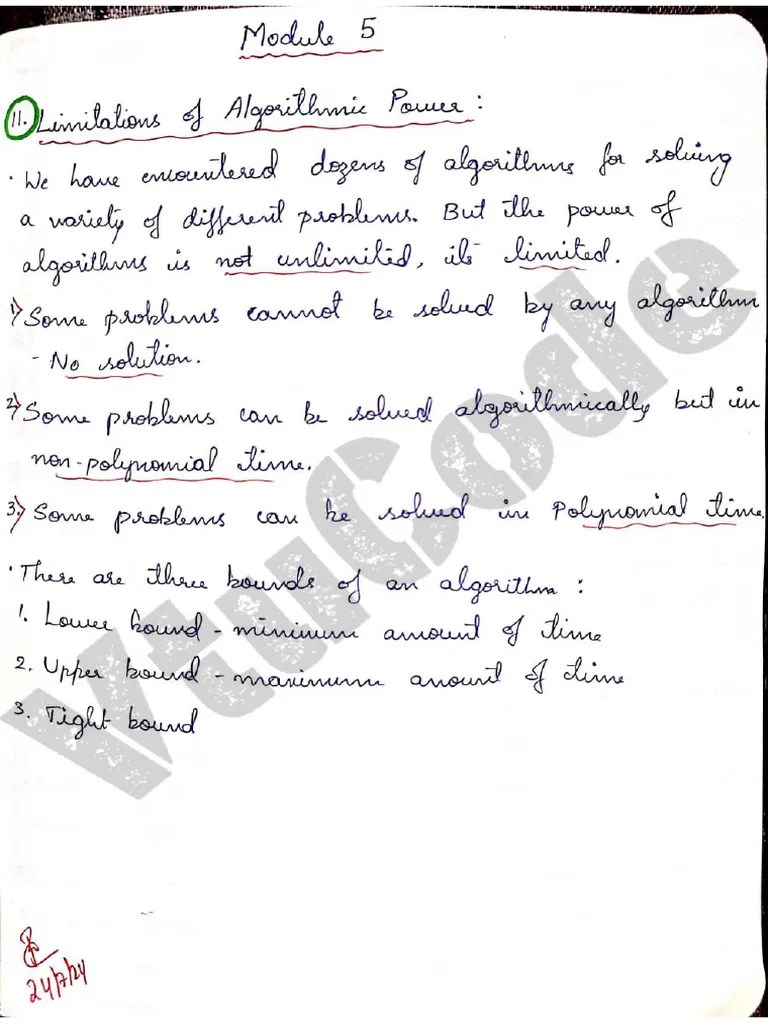 Module 5
11. Limitations of Algorithmic Power :
· We have encountered dozens of algorithms for solving
a variety of different problems. But the power of
algorithms is not unlimited, its limited.
1) Some problems cannot be solved by any algorithm
- No solution.
2) Some problems can be solved algorithmically but in
non-polynomial time.
3.) Some problems can be solved in Polynomial time.
· There are three bounds of an algorithm :
1. Lower bound - minimum amount of time
2. Upper bound - maximum amount of time
3. Tight bound
VtuCode
24/7/24